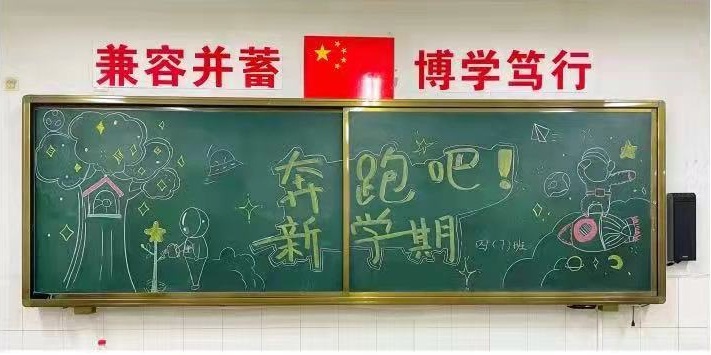 兼容并蓄 博学笃行
奔跑吧!
新学期
四(7)班